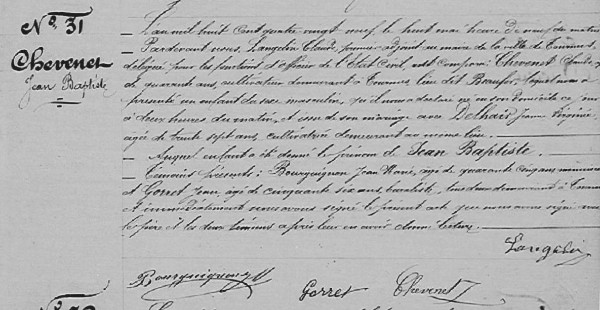 No. 31
Chevenet
Jean Baptiste
L'an mil huit cent quatre vingt neuf le huit mai heure de neuf du matin
Pardevant nous, Langelin Claude, premier adjoint au maire de la ville de Tournus,
délégué pour les fonctions d'officier de l'Etat Civil, est comparu Chevenet Claude
de quarante ans, cultivateur demeurant à Tournus, lieu dit Beaufer, lequel nous a
présenté un enfant du sexe masculin, qu'il nous a déclaré né en son domicile ce jour
à deux heures du matin, et issu de son mariage avec Jeanne Virginie,
âgée de trente sept ans, cultivatrice demeurant au même lieu.
Auquel enfant a été donné le prénom de Jean Baptiste.
Témoins présents : Bourguignon Jean Marie, âgé de quarante cinq ans
et Gorret âgé de cinquante six ans, tous deux demeurant à
et immédiatement nous avons signé le présent acte que nous avons signé avec
le père et les deux témoins après leur en avoir donné lecture.
Langelin
Bourguignon Gorret Chevenet